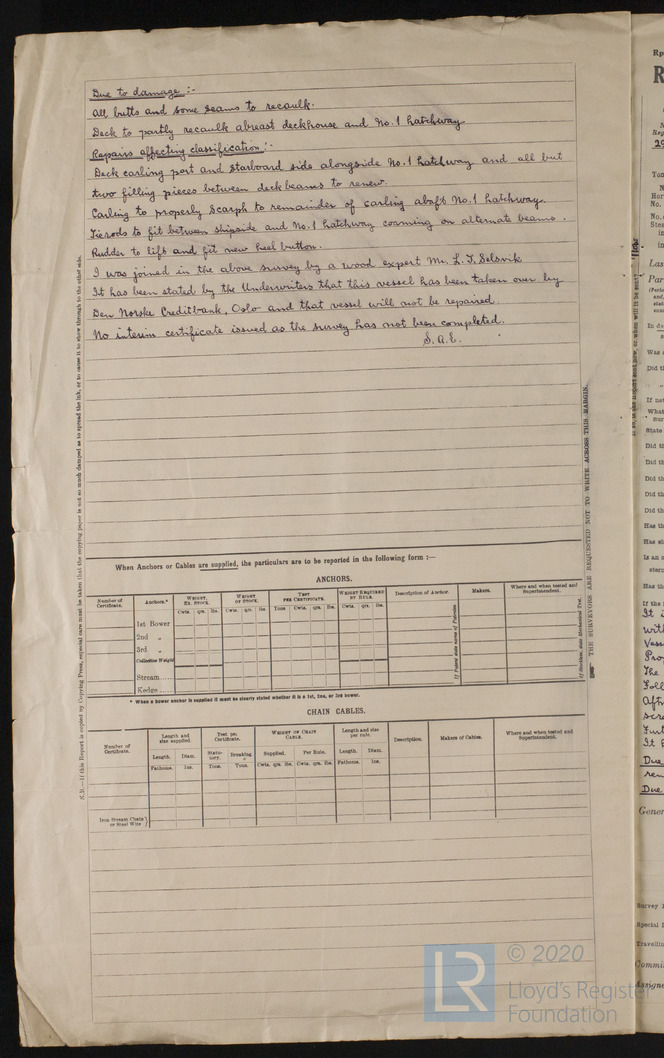 Due to damage :-
All butts and some seams to recaulk.
Deck to partly recaulk abreast deckhouse and No.1 hatchway
Repairs affecting classification :-
Deck carling port and starboard side alongside No.1 hatchway and all but
two filling pieces between deckbeams to renew.
Carling to properly scarph to remainder of carling abaft No.1 hatchway.
Tierods to fit between shipside and No.1 hatchway coaming on alternate beams.
Rudder to lift and fit new heel button.
I was joined in the above survey by a wood expert Mr. L. T.
It has been stated by the Underwriters that this vessel has been taken over by
Den Norske Creditbank, Oslo and that vessel will not be repaired.
No interim certificate issued as the survey has not been completed.
S.A.E.
N.B.—If this Report is copied by Copying Press, especial care must be taken that the copying paper is not so much damped as to spread the ink, or to cause it to show through to the other side.
THE SURVEYORS ARE REQUESTED NOT TO WRITE ACROSS THIS MARGIN.
When Anchors or Cables are supplied, the particulars are to be reported in the following form :—
ANCHORS.
Number of Certificate. Anchors.* WEIGHT, EX. STOCK. WEIGHT OF STOCK. TEST PER CERTIFICATE. WEIGHT REQUIRED BY RULE. Description of Anchor. Makers. Where and when tested and Superintendent.
Cwts. qrs. lbs. Cwts. qrs. lbs. Tons Cwts. qrs. lbs. Cwts. qrs. lbs.
1st Bower
2nd „
3rd „
Collective Weight
Stream.....
Kedge.....
If Patent state name of Patentee
If Stockless, state Mechanical Test.
* When a bower anchor is supplied it must be clearly stated whether it is a 1st, 2nd, or 3rd bower.
CHAIN CABLES.
Number of Certificate. Length and size supplied. Test per Certificate. WEIGHT OF CHAIN CABLE. Length and size per rule. Description. Makers of Cables. Where and when tested and Superintendent.
Length. Diam. Statutory. Breaking Supplied. Per Rule. Length. Diam.
Fathoms. Ins. Tons. Tons. Cwts. qrs. lbs. Cwts. qrs. lbs. Fathoms. Ins.
Iron Stream Chain or Steel Wire
LR © 2020
Lloyd's Register
Foundation